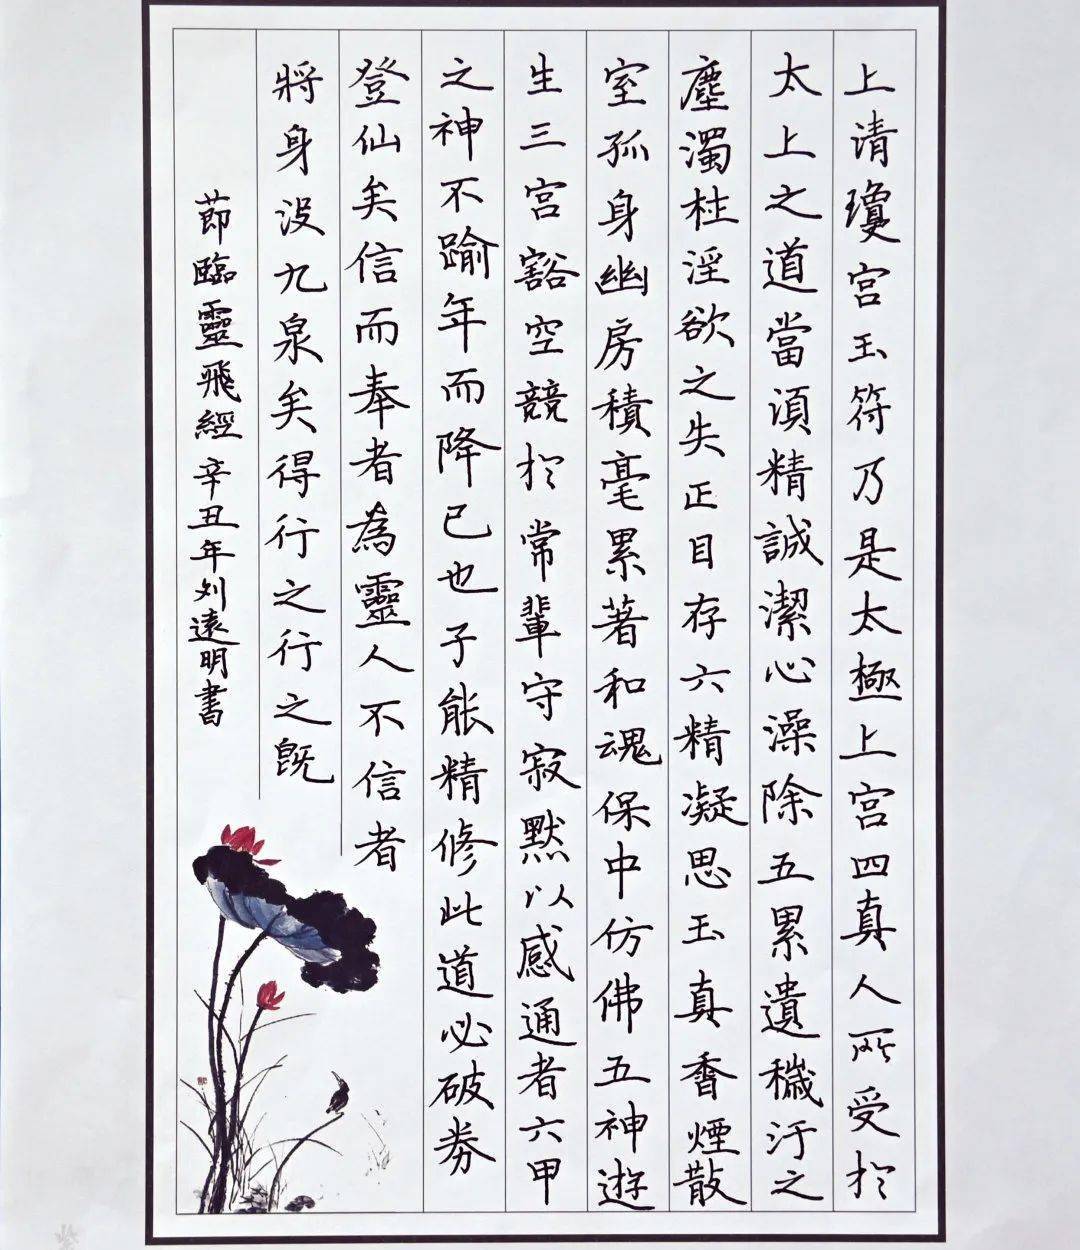 上清瓊宮玉符乃是太極上宮四真人所受於
太上之道當須精誠潔心澡除五累遺穢汙之
塵濁杜淫欲之失正目存六精凝思玉真香煙散
室孤身幽房積毫累著和魂保中仿佛五神遊
生三宮豁空競於常輩守寂默以感通者六甲
之神不踰年而降已也子能精修此道必破券
登仙矣信而奉者為靈人不信者
將身沒九泉矣得行之行之既
節臨靈飛經辛丑年刘遠明書